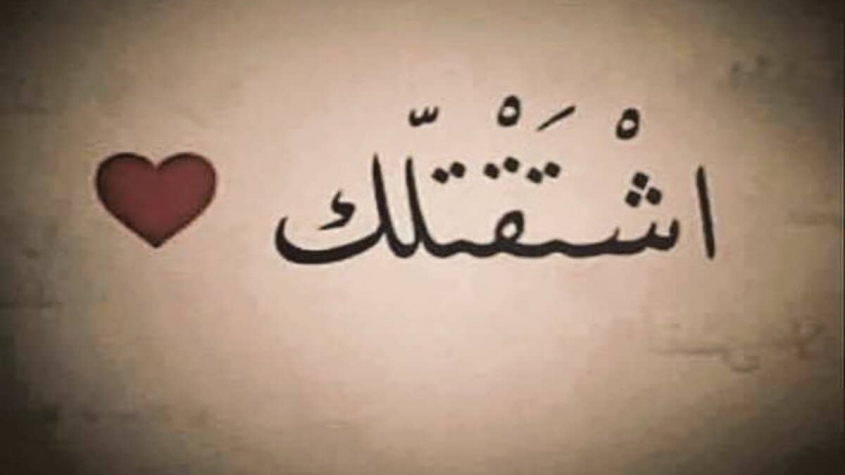 اشْتَقْتلّك